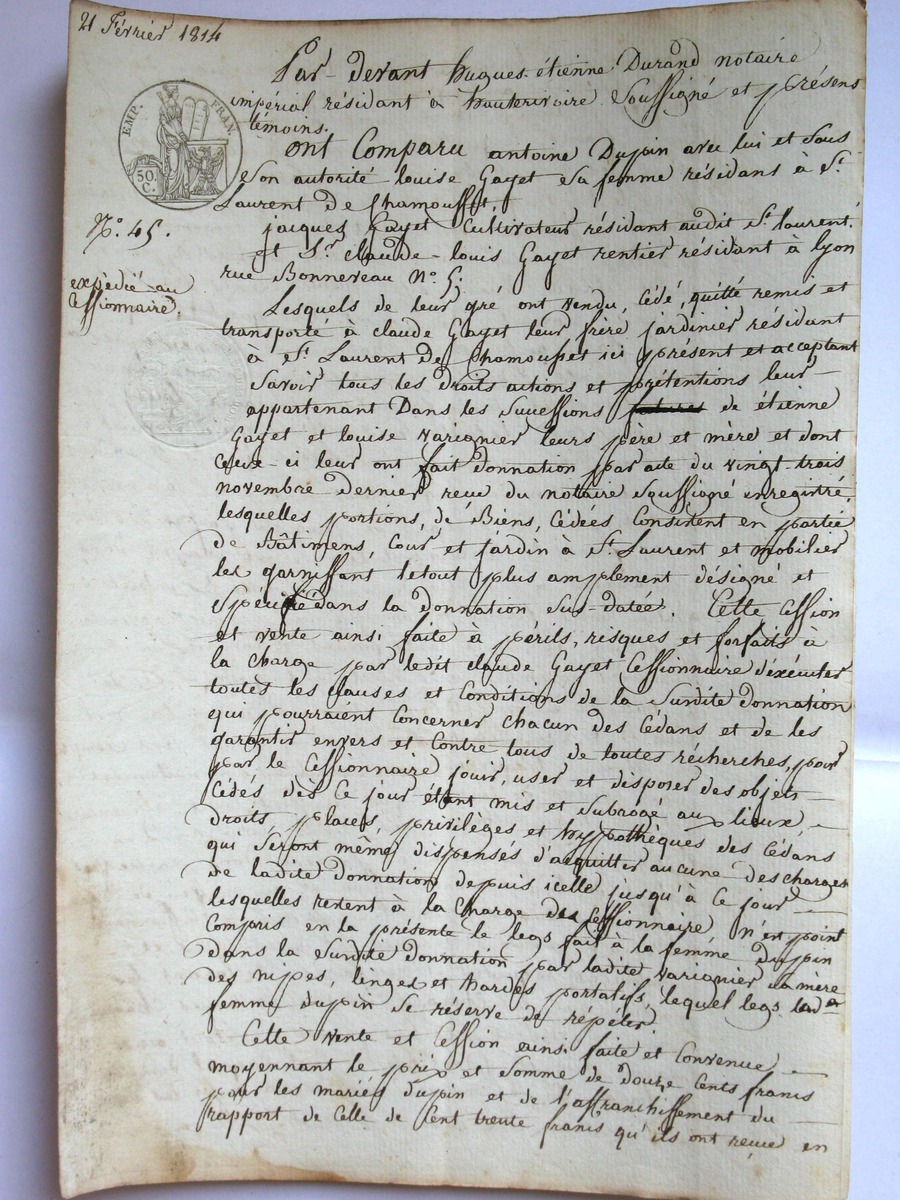 21 Février 1814
Par-devant hugues-étienne Durand notaire
impérial résidant à hauterivoire soussigné et présens
témoins.
EMP. FRAN.
50. C.
ont Comparu antoine Dupin avec lui et sous
son autorité louise Gayet sa femme résidans à St.
Laurent de Chamousset,
N.º 45.
jacques Gayet Cultivateur résidant audit St. laurent.
et Sr. claude-louis Gayet rentier résidant à lyon
rue Bonneveau Nº 5;
expédié au
Cessionnaire.
Lesquels de leur gré ont vendu, Cédé, quitté remis et
transporté à claude Gayet leur frère jardinier résidant
à St. Laurent de Chamousset ici présent et acceptant
Savoir tous les droits actions et prétentions leur
appartenant Dans les Successions futures de étienne
Gayet et louise varignier leurs père et mère et dont
Ceux-ci leur ont fait donnation par acte du vingt-trois
novembre dernier reçue du notaire soussigné enregistré,
lesquelles portions, de Biens, Cédées Consistent en partie
de Bâtimens, Cour et jardin à St. Laurent et mobilier
les garnissant letout plus amplement désigné et
spécifié dans la donnation sus-datée. Cette Cession
et vente ainsi faite à périls, risques et forfaits à
la charge par ledit claude Gayet Cessionnaire d'éxécuter
toutes les clauses et Conditions de la Surdite donnation
qui pourraient Concerner chacun des Cédans et de les
garantir envers et Contre tous de toutes récherches, pour
par le Cessionnaire jouir, user et disposer des objets
Cédés dès Ce jour étant mis et subrogé aux lieux,
droits places, privilèges et hyppothèques des Cédans
qui Seront même dispensés d'acquitter aucune des charges
de ladite donnation depuis icelle jusqu'à ce jour
lesquelles restent à la Charge du Cessionnaire N'est point
Compris en la présente le legs fait à la femme dupin
dans la Surdite donnation par ladite varignier sa mère
des nipes, linges et hardes portatifs, lequel legs lad.
femme dupin se réserve de répéter.
Cette vente et Cession ainsi faite et Convenue
moyennant le prix et somme de douze Cents francs
pour les mariés Dupin et de l'affranchissement du
rapport de Celle de Cent trente francs qu'ils ont reçue en